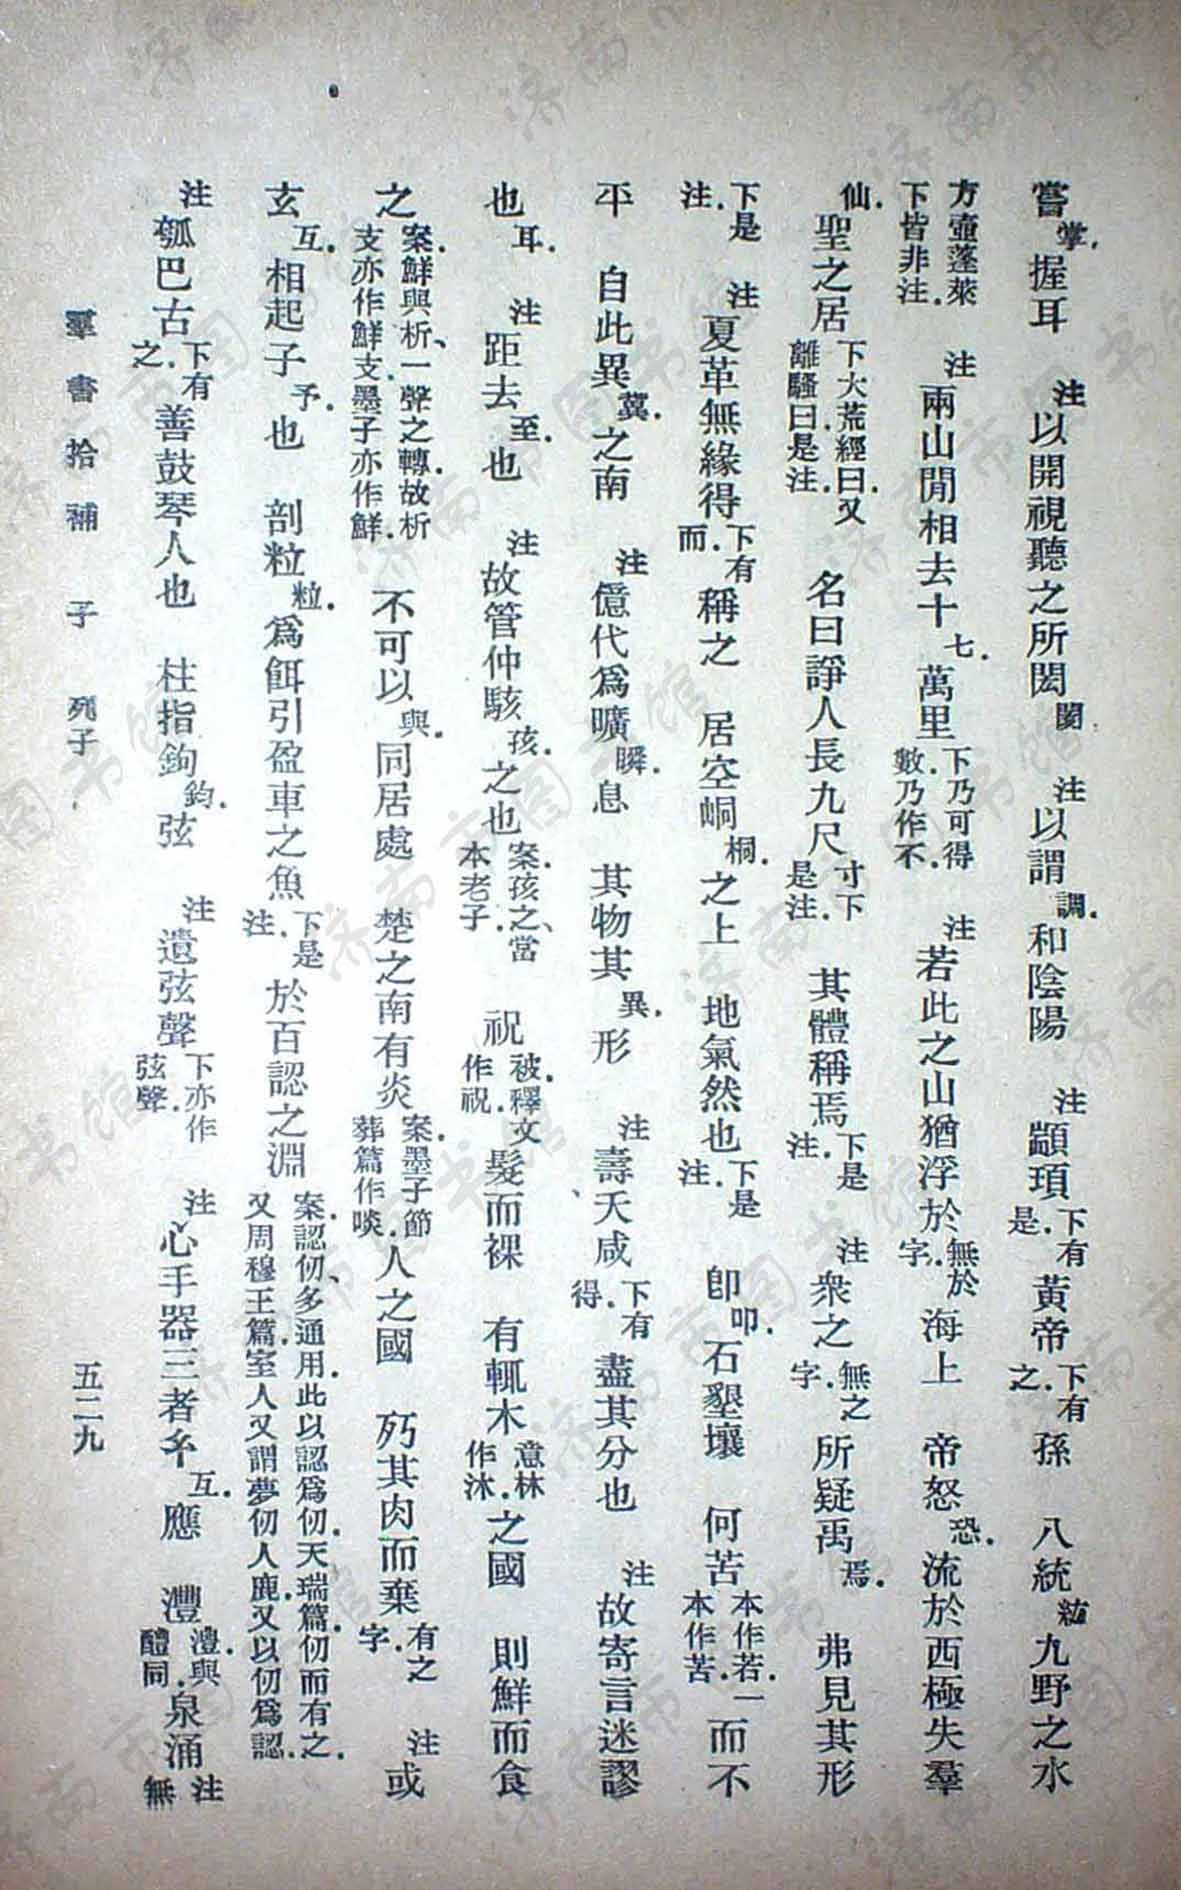 嘗掌.握耳　注以開視聽之所閡閡　注以謂調.和陰陽　注顓頊下有是.黃帝下有之.孫　八統紘九野之水
方壺蓬萊下皆非注.　注兩山閒相去十七.萬里下乃可得數.乃作不.　注若此之山猶浮於無於字.海上　帝怒恐.流於西極失羣
仙.聖之居下大荒經曰.又離騷曰.是注.　名曰諍人長九尺寸下是注.　其體稱焉下是注.　注衆之無之字.所疑禹焉.　弗見其形
下是注.　注夏革無緣得下有而.稱之　居空峒桐.之上　地氣然也下是注.　卽叩.石墾壤　何苦本作若.一本作苦.而不
平　自此異冀.之南　注億代爲曠瞬.息　其物其異.形　注壽夭咸下有得.盡其分也　注故寄言迷謬
也耳.　注距去至.也　注故管仲駭孩.之也案.孩之、當本老子.　祝被.釋文作祝.髮而裸　有輒木意林作沐.之國　則鮮而食
之案.鮮與析、一聲之轉.故析支亦作鮮支.墨子亦作鮮.　不可以與.同居處　楚之南有炎案.墨子節葬篇作啖.人之國　𣧩其肉而棄有之字.　注或
玄互.相起子予.也　剖粒粒.爲餌引盈車之魚下是注.　於百認之淵案.認仞、多通用.此以認爲仞.天瑞篇.仞而有之.又周穆王篇.室人又謂夢仞人鹿.又以仞爲認.
注瓠巴古下有之.善鼓琴人也　柱指鉤鈞.弦　注遺弦聲下亦作弦聲.　注心手器三者㸦互.應　灃澧.與醴同.泉涌注無
羣書拾補　子　列子　五二九